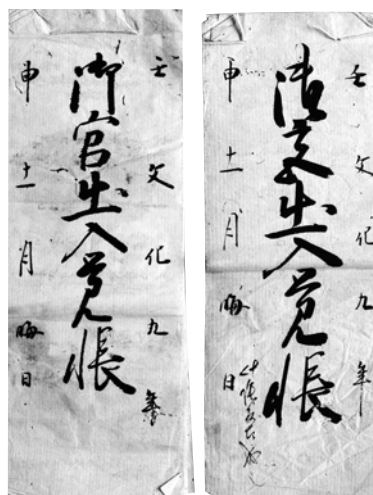 壬文化九年
出入覚帳
申十一月晦日
壬文化九年
御官出入覚帳
申十一月晦日